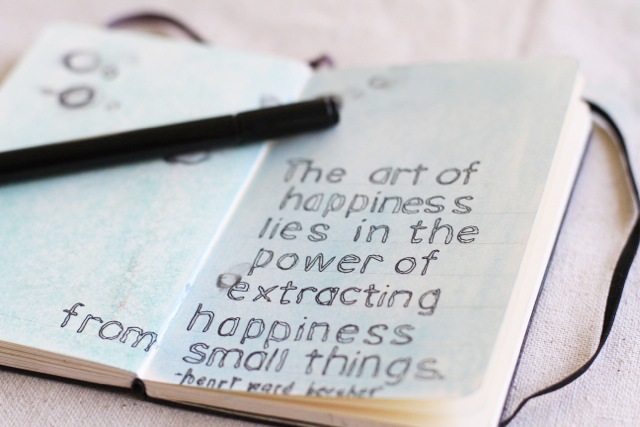 The art of
happiness
lies in the
power of
extracting
happiness
from small things.
-henry ward beecher